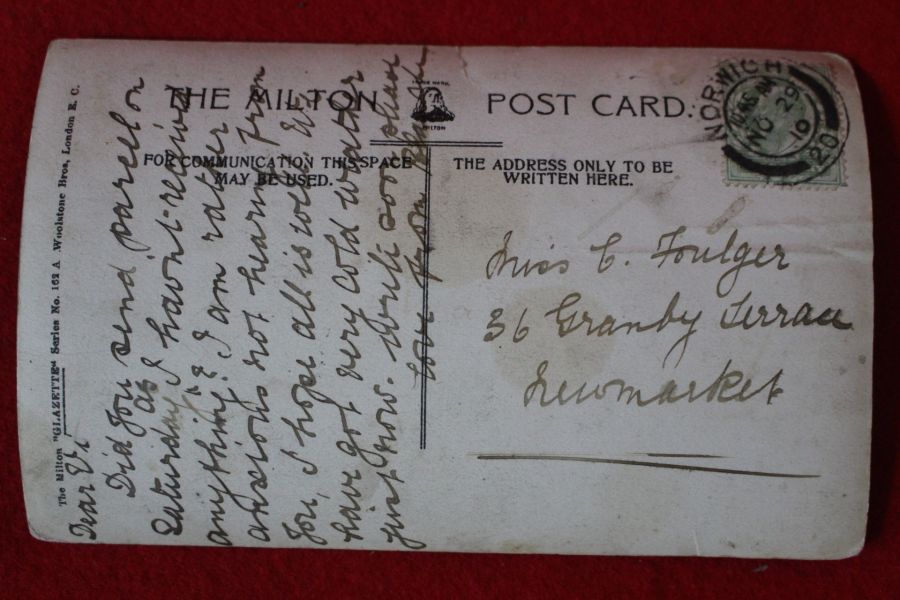 THE MILTON POST CARD.
TRADE MARK.
MILTON
FOR COMMUNICATION THIS SPACE
MAY BE USED.
THE ADDRESS ONLY TO BE
WRITTEN HERE.
The Milton "GLAZETTE" Series No. 162 A Woolstone Bros, London E. C.
NORWICH
NO 29
10
20
Miss C. Foulger
36 Granby Terrace
Newmarket
Dear
Did you send parcel on
Saturday as I havnt received
anything? I am rather
anxious not hearing from
you, I hope all is well. We
have got very cold weather
just now. Write soon
love from